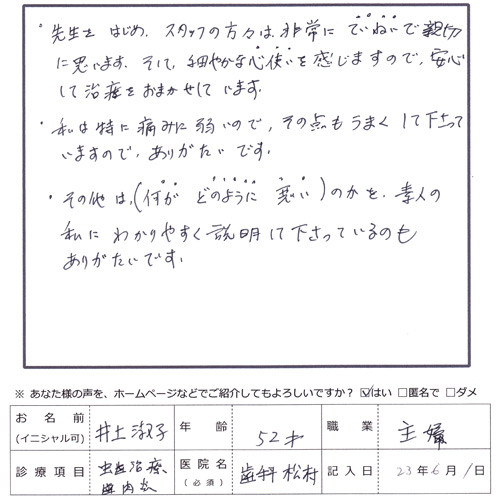 ・先生をはじめ、スタッフの方々は、非常にていねいで親切
に思います。そして、細やかな心使いを感じますので、安心
して治療をおまかせしています。
・私は特に痛みに弱いので、その点もうまくして下さって
いますので、ありがたいです。
・その他は、(何が どのように 悪い)のかを、素人の
私に わかりやすく説明して下さっているのも
ありがたいです。
※ あなた様の声を、ホームページなどでご紹介してもよろしいですか？ ☑はい □匿名で □ダメ
お名前 (イニシャル可) 井上淑子 年齢 52才 職業 主婦
診療項目 虫歯治療 歯肉炎 医院名 (必須) 歯科松村 記入日 23年6月1日